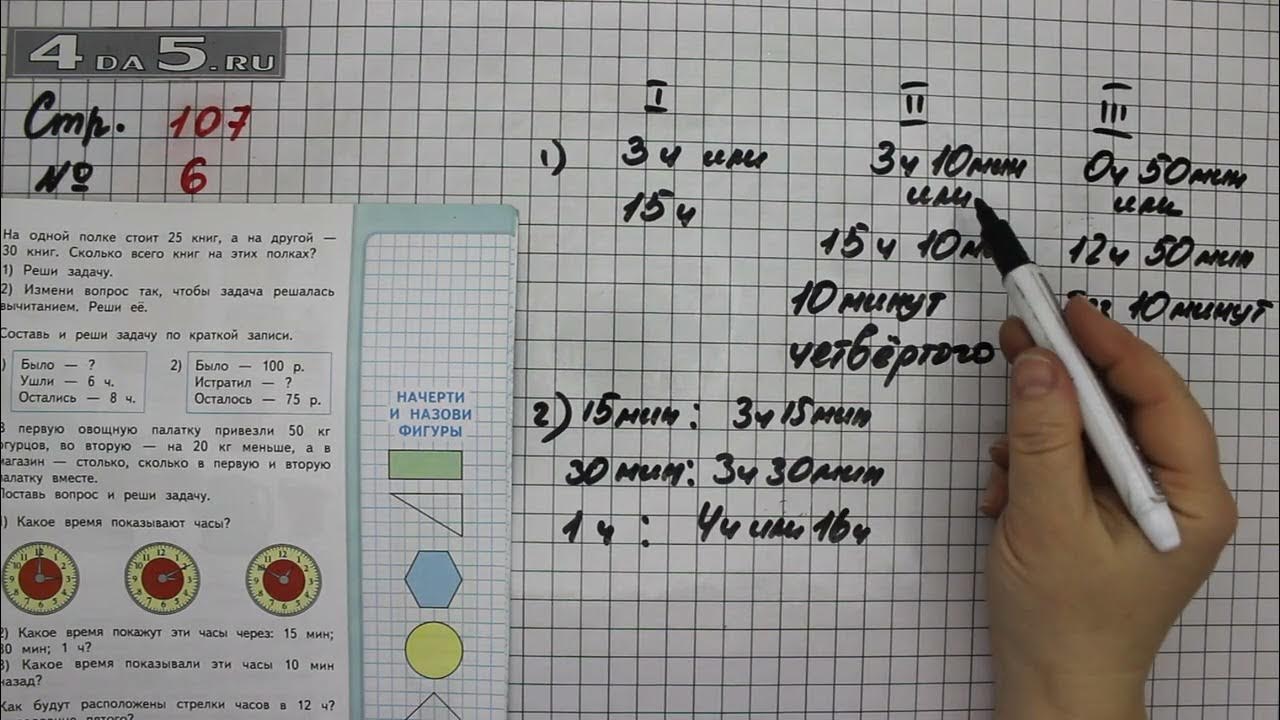 4DA5.RU
Стр. 107
№ 6
На одной полке стоит 25 книг, а на другой —
30 книг. Сколько всего книг на этих полках?
1) Реши задачу.
2) Измени вопрос так, чтобы задача решалась
вычитанием. Реши её.
Составь и реши задачу по краткой записи.
) Было — ?
Ушли — 6 ч.
Остались — 8 ч.
2) Было — 100 р.
Истратил — ?
Осталось — 75 р.
первую овощную палатку привезли 50 кг
огурцов, во вторую — на 20 кг меньше, а в
магазин — столько, сколько в первую и вторую
палатку вместе.
Поставь вопрос и реши задачу.
1) Какое время показывают часы?
2) Какое время покажут эти часы через: 15 мин;
30 мин; 1 ч?
3) Какое время показывали эти часы 10 мин
назад?
Как будут расположены стрелки часов в 12 ч?
пятого?
НАЧЕРТИ
И НАЗОВИ
ФИГУРЫ
I
1) 3 ч или
15 ч
II
3 ч 10 мин
или
15 ч 10 м
10 минут
четвёртого
III
0 ч 50 мин
или
12 ч 50 мин
10 минут
2) 15 мин: 3 ч 15 мин
30 мин: 3 ч 30 мин
1 ч : 4 ч или 16 ч